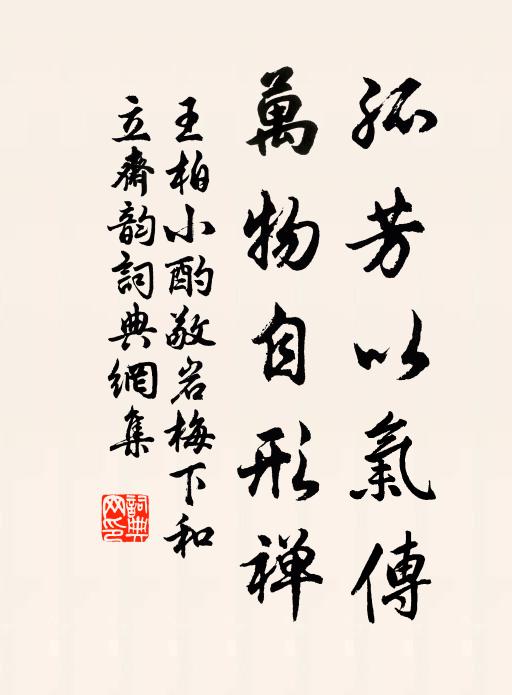 孤芳以氣傳
萬物自形禅
王柏小酌敬岩梅下和
立齋韵詞典網集
詞典网印